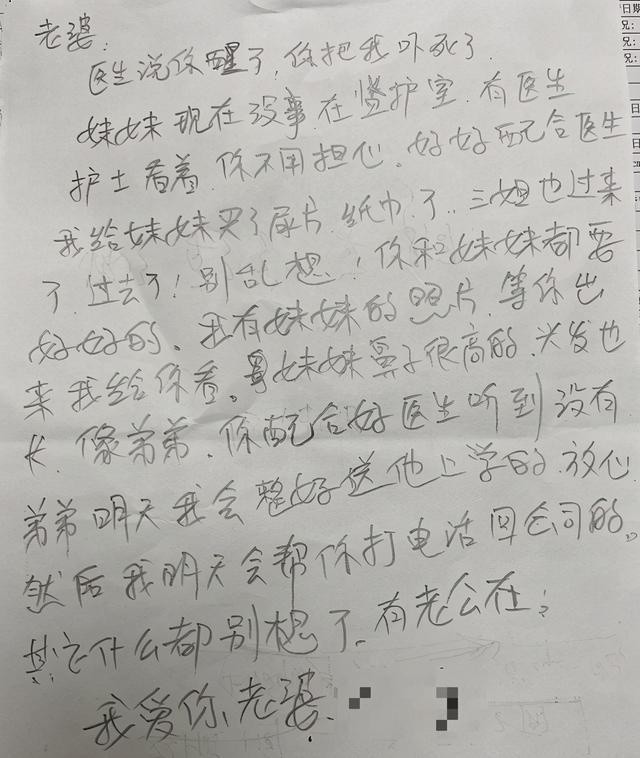 老婆.
医生说你醒了,你把我吓死了.
妹妹现在没事.在监护室.有医生
护士看着.你不用担心.好好配合医生
我给妹妹买了尿片.纸巾了..三姐也过来
了.过去了!别乱想!你和妹妹都要
好好的、我有妹妹的照片.等你出
来我给你看。妹妹鼻子很高的.头发也
长.像弟弟.你配合好医生听到没有
弟弟明天我会整好送他上学的.放心.
然后我明天会帮你打电话回公司的。
其它什么都别想了.有老公在;
我爱你、老婆.
日期
况:
况:
况: